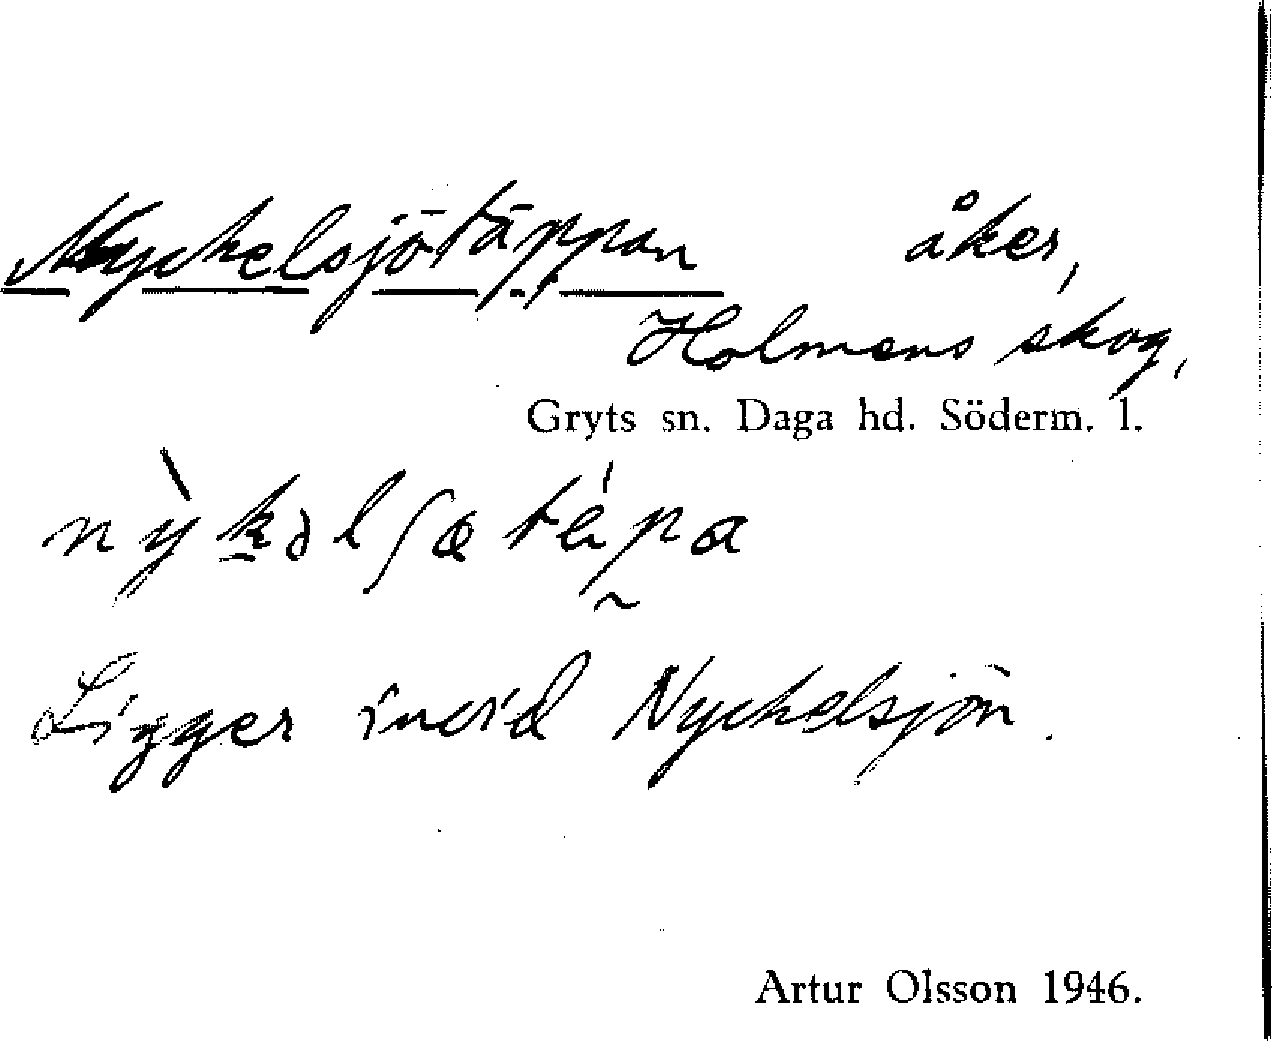 Nyckelsjötäppan åker,
Holmens skog,
Gryts sn. Daga hd. Söderm. l.
Ligger invid Nyckelsjön.
Artur Olsson 1946.